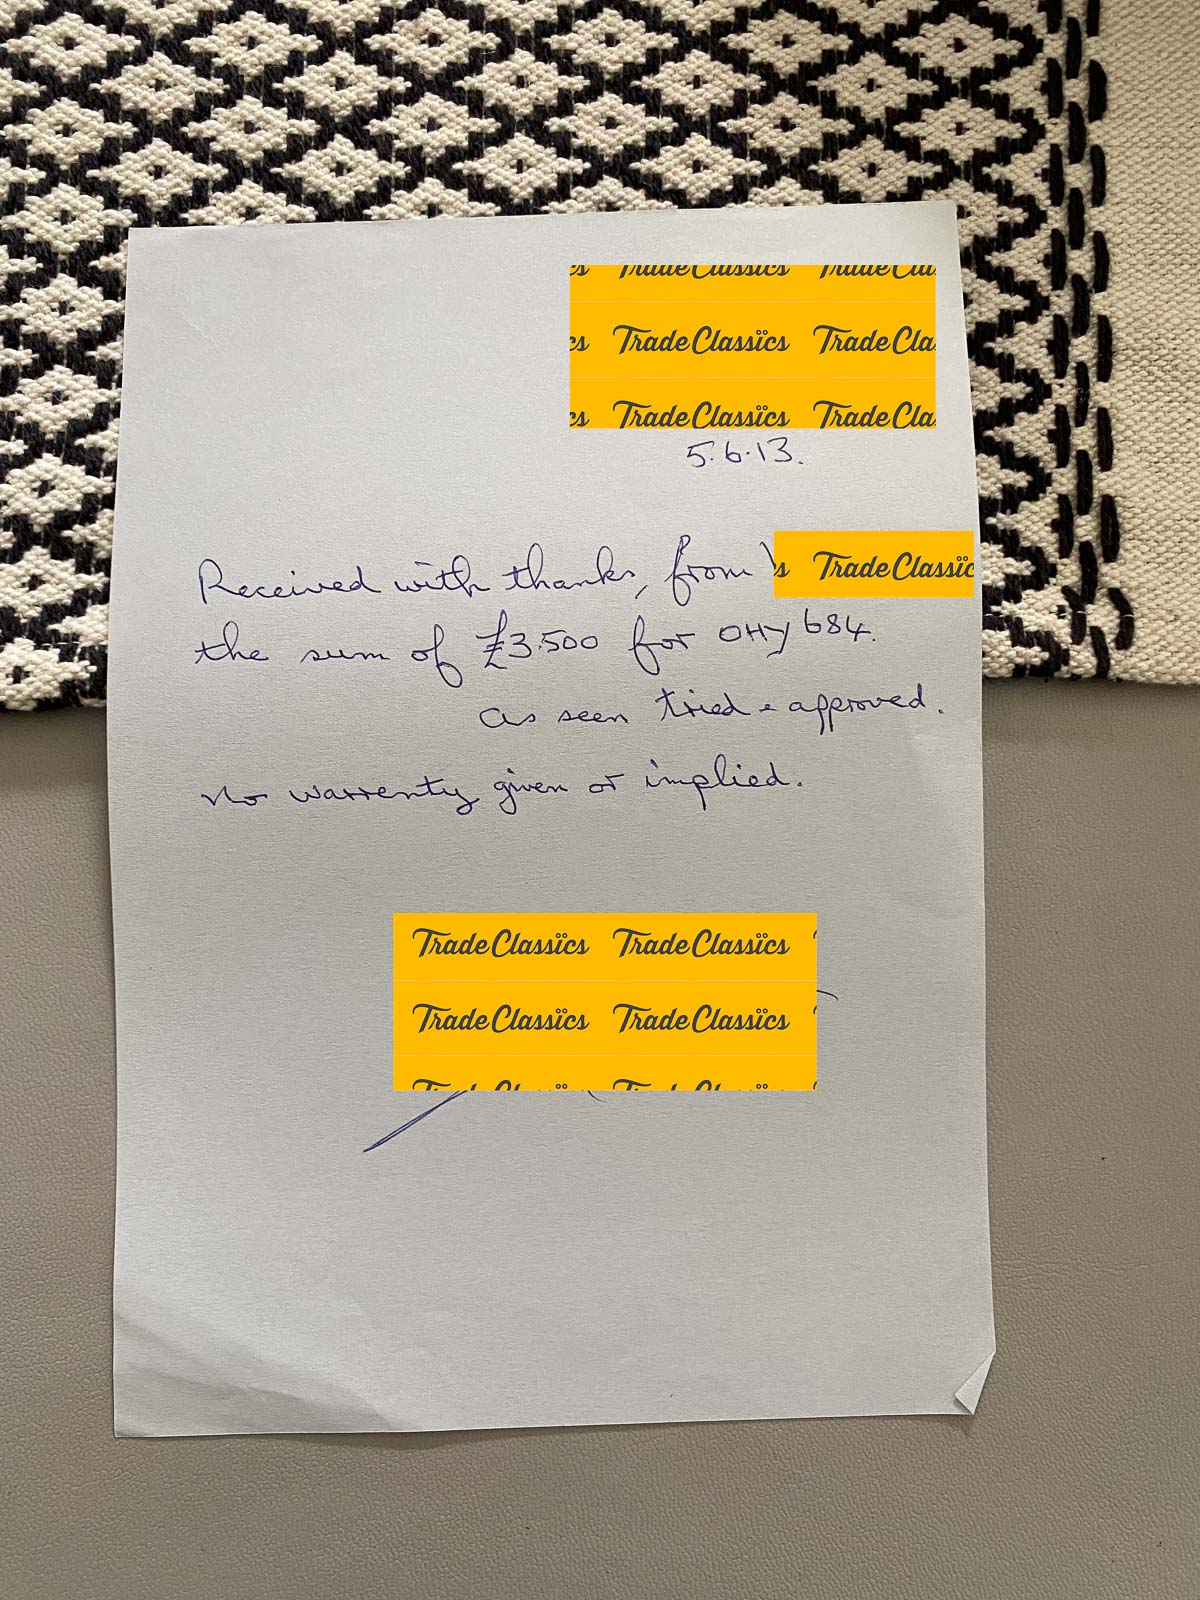 cs TradeClassics TradeCla
cs TradeClassics TradeCla
cs TradeClassics TradeCla
5.6.13.
Received with thanks, from s TradeClassic
the sum of £3.500 for OHY 684.
as seen tried & approved.
No warrenty given or implied.
TradeClassics TradeClassics
TradeClassics TradeClassics
TradeClassics TradeClassics